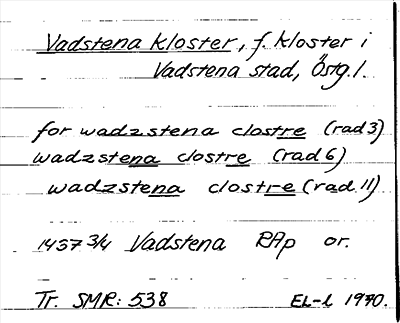 Vadstena kloster, f. kloster i
Vadstena stad, Östg. l.
for wadzstena clostre (rad 3)
wadzstena clostre (rad 6)
wadzstena clostre (rad 11)
1437 3/4 Vadstena RAp or.
Tr. SMR: 538 EL-l 1970.